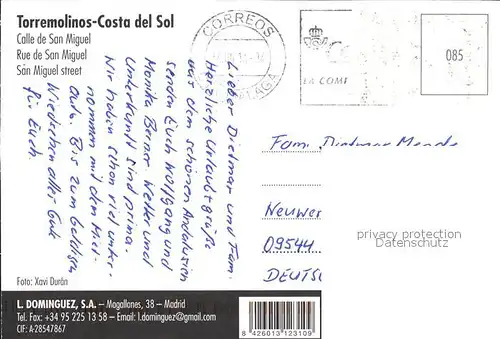 Torremolinos-Costa del Sol
Calle de San Miguel
Rue de San Miguel
San Miguel street
CORREOS
MALAGA
LA COMI
085
Lieber Dietmar und Fam.
Herzliche Urlaubsgrüße
aus dem schönen Andalusien
senden Euch Wolfgang und
Monika Berner. Wetter und
Unterkunft sind prima.
Wir haben schon viel unter-
nommen mit dem Miet-
auto. Bis zum
Wiedsehen alles Gute
für Euch
Fam. Dietmar
Neuwer
09544
DEUTS
privacy protection
Datenschutz
Foto: Xavi Durán
L. DOMINGUEZ, S.A. – Magallanes, 38 – Madrid
Tel. Fax: +34 95 225 13 58 – Email: l.dominguez@gmail.com
CIF: A-28547867
8 426013 123109